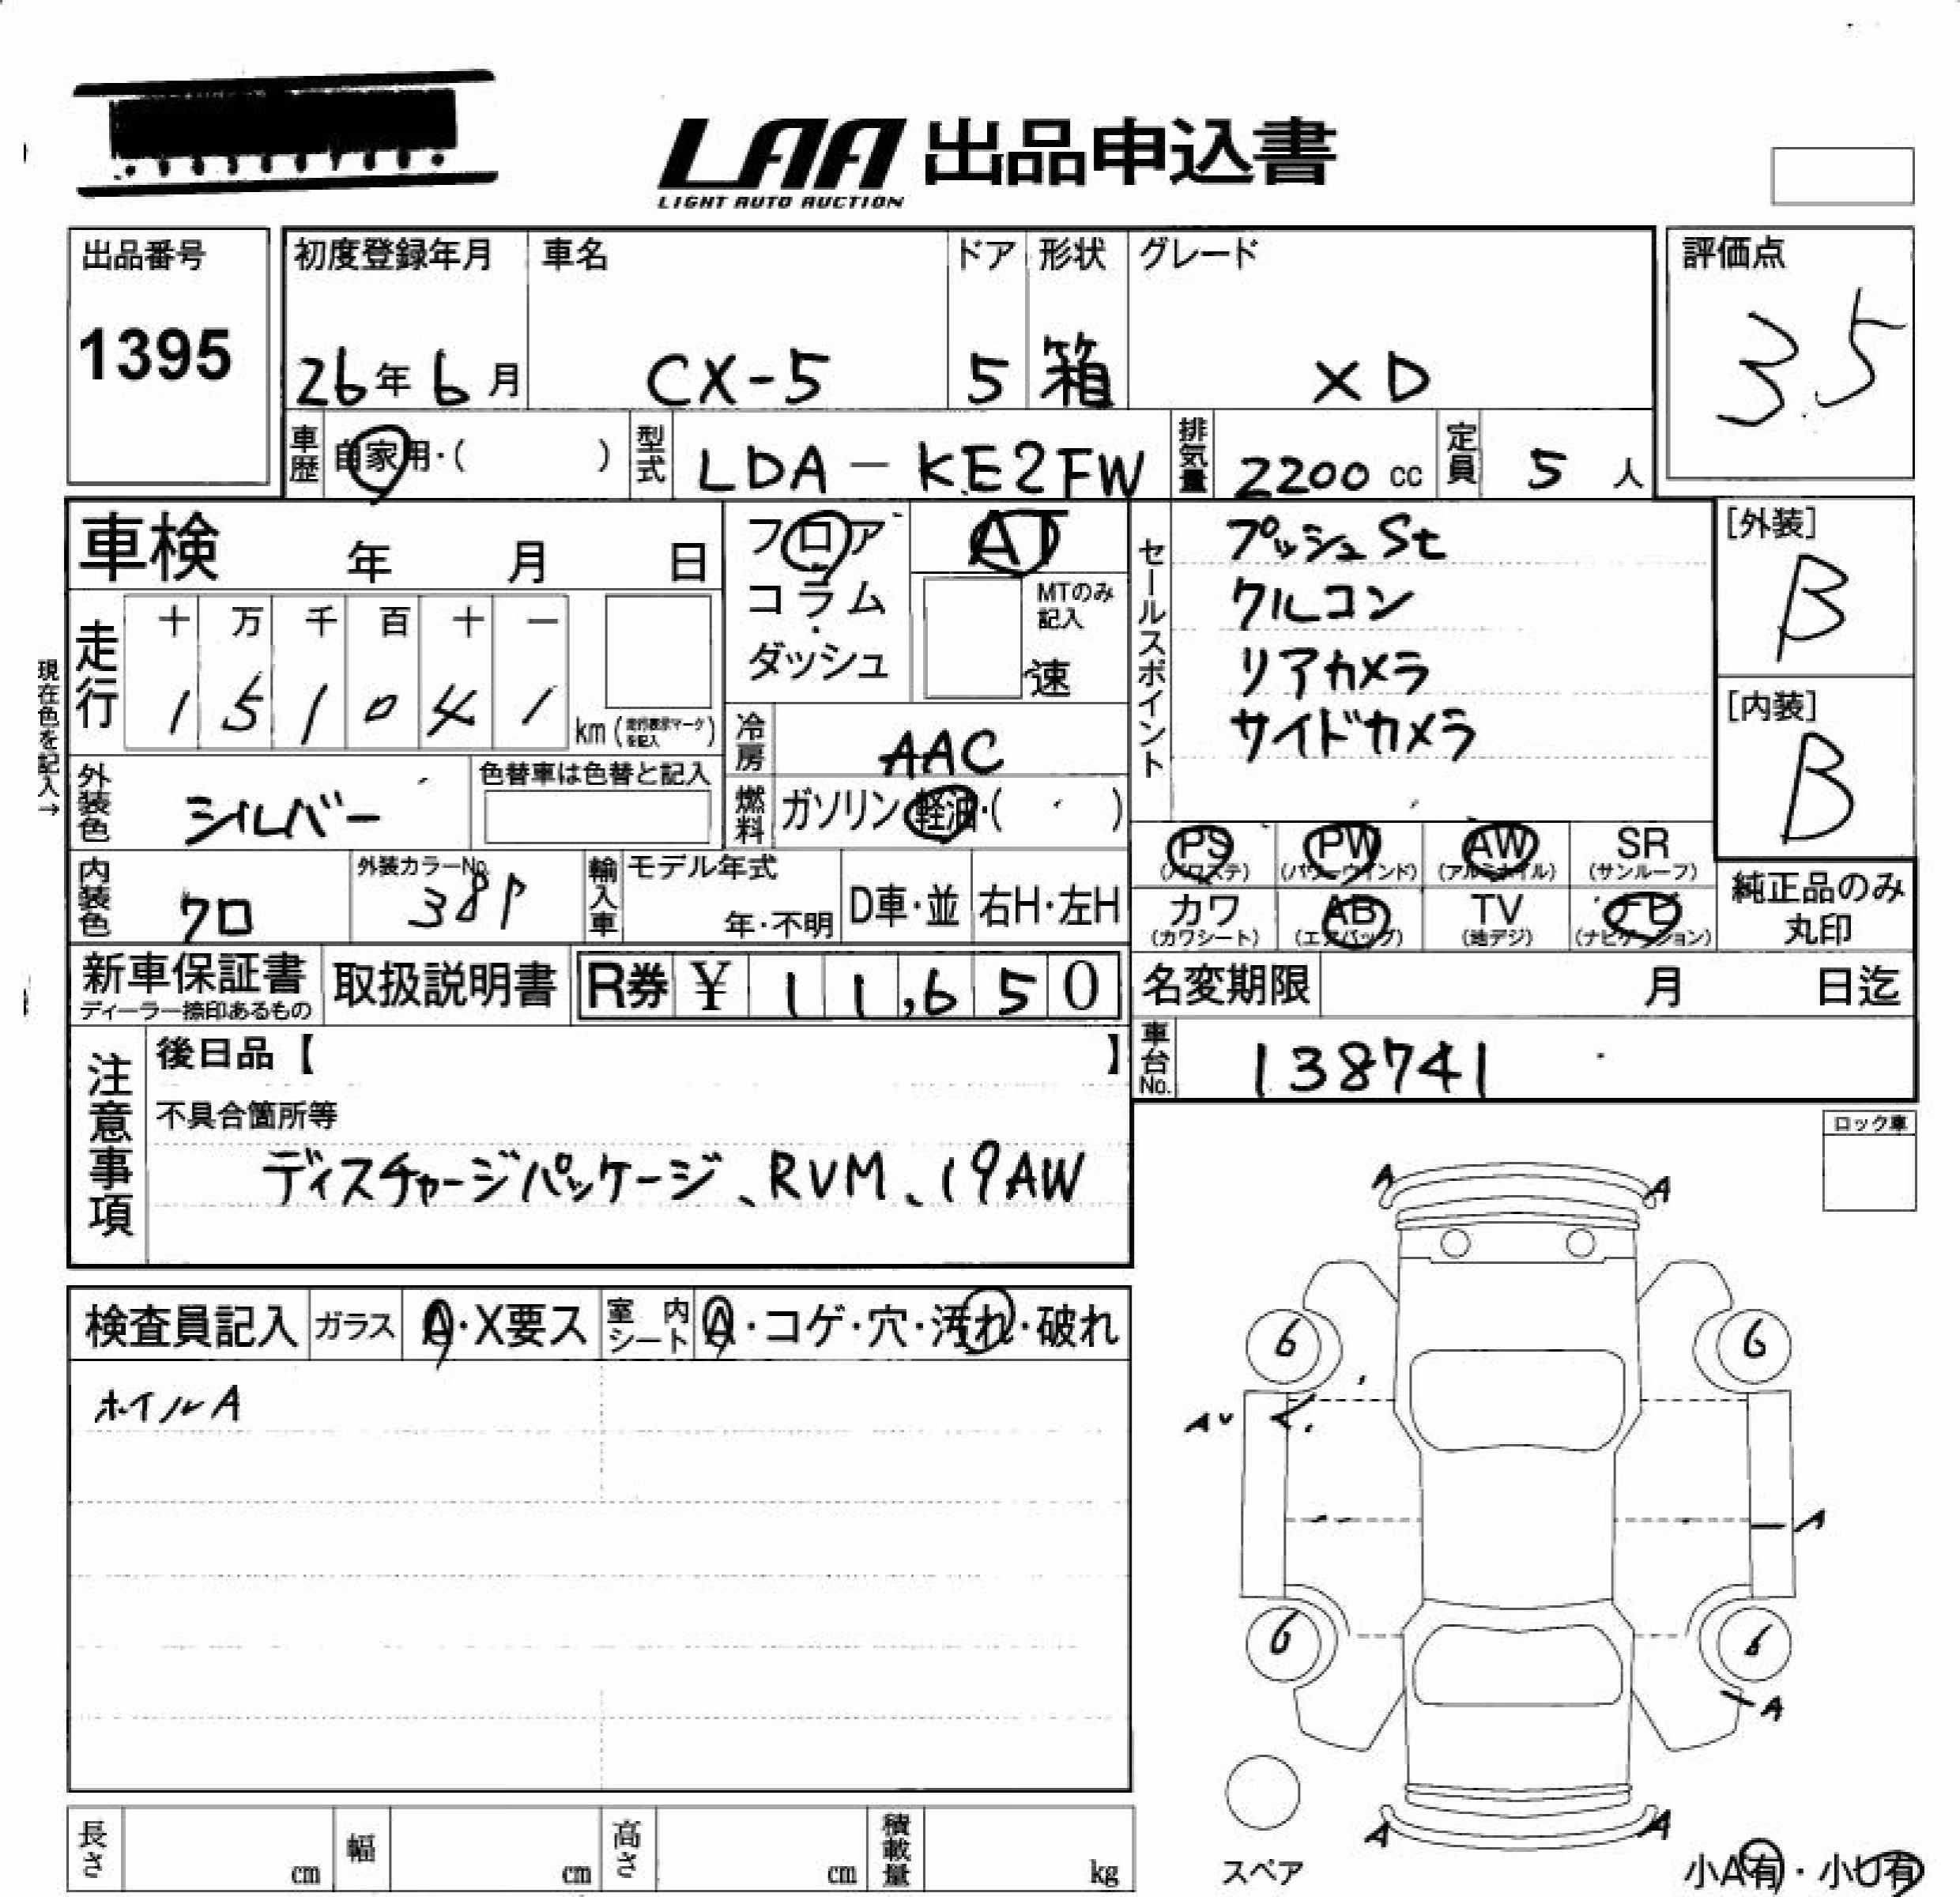 LAA 出品申込書
LIGHT AUTO AUCTION
出品番号
1395
初度登録年月
26年6月
車名
CX-5
ドア
5
形状
箱
グレード
XD
評価点
3.5
車歴
自家用・( )
型式
LDA-KE2FW
排気量
2200 cc
定員
5 人
車検 年 月 日
フロア
コラム
・
ダッシュ
AT
MTのみ
記入
速
セールスポイント
プッシュSt
クルコン
リアカメラ
サイドカメラ
[外装]
B
[内装]
B
現在色を記入→
走行
十 万 千 百 十 一
1 5 1 0 4 1
km (走行表示マークを記入)
冷房
AAC
外装色
シルバー
色替車は色替と記入
燃料
ガソリン・軽油・( )
PS
(パワステ)
PW
(パワーウインド)
AW
(アルミホイル)
SR
(サンルーフ)
内装色
クロ
外装カラーNo.
38P
輸入車
モデル年式
年・不明
D車・並
右H・左H
カワ
(カワシート)
AB
(エアバッグ)
TV
(地デジ)
ナビ
(ナビゲーション)
純正品のみ
丸印
新車保証書
ディーラー捺印あるもの
取扱説明書
R券 ¥ 11,650
名変期限 月 日迄
車台No.
138741
注意事項
後日品【 】
不具合箇所等
ディスチャージパッケージ、RVM、19AW
ロック車
検査員記入
ガラス
A・X要ス
室内シート
A・コゲ・穴・汚れ・破れ
ホイルA
A A
6 6
AU
A
6 6
A
A A
スペア
小A有・小U有
長さ cm
幅 cm
高さ cm
積載量 kg